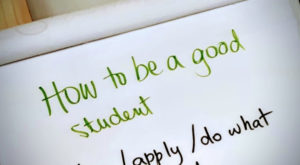 How to be a good
student
/apply /do what